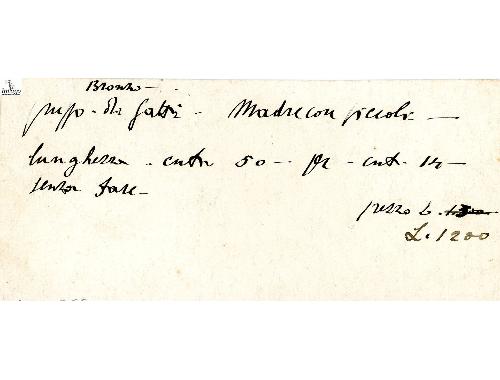 Bronzo -
gruppo - di gatti - Madre con piccoli -
lunghezza - cmtr 50 - per - cmt - 14 -
senza base -
prezzo L.
L. 1200